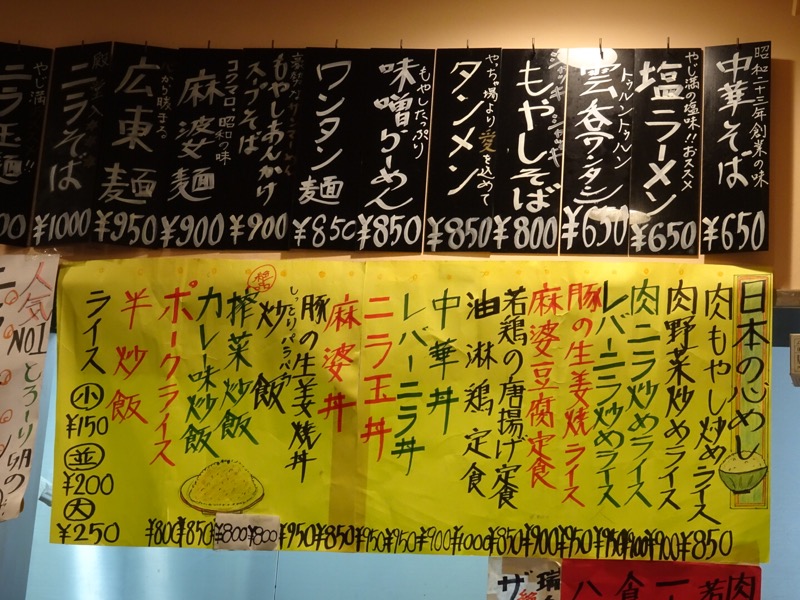 昭和二十三年創業の味
中華そば
¥650
やじ満の塩味!!おススメ
塩ラーメン
¥650
トゥルントゥルン
雲呑ワンタン
¥650
シャキシャキ
もやしそば
¥800
やじ満より愛を込めて
タンメン
¥850
もやしたっぷり
味噌らーめん
¥850
ワンタン麺
¥850
もやしあんかけ
スブタそば
¥900
コクマロ、昭和の味
麻婆麺
¥900
広東麺
¥950
ニラそば
¥1000
やじ満
ニラ玉麺
日本の心めし
肉もやし炒めライス
¥850
肉野菜炒めライス
¥900
肉ニラ炒めライス
¥900
レバーニラ炒めライス
¥950
豚の生姜焼ライス
¥950
麻婆豆腐定食
¥900
若鶏の唐揚げ定食
¥850
油淋鶏定食
¥1000
中華丼
¥900
レバーニラ丼
¥950
ニラ玉丼
¥950
麻婆丼
¥850
豚の生姜焼丼
¥950
しっとりパラパラ
炒飯
¥800
搾菜炒飯
¥800
カレー味炒飯
¥850
ポークライス
¥800
半炒飯
ライス
小
¥150
並
¥200
大
¥250
人気
NO1
とろーり